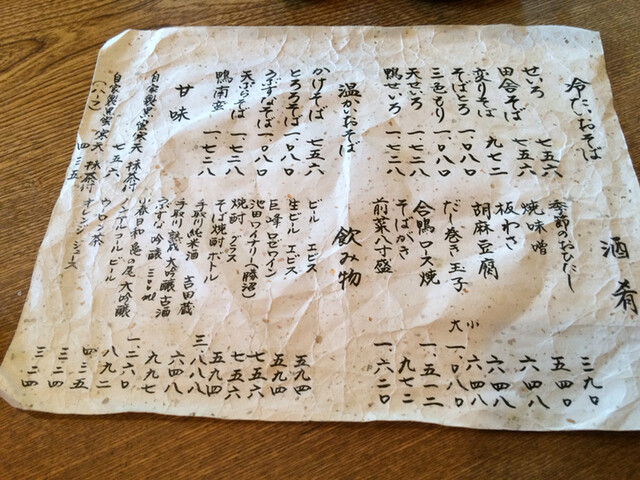 冷たいおそば
せいろ 七五六
田舎そば 七五六
変りそば 九七二
そばとろ 一、〇八〇
三色もり 一、〇八〇
天せいろ 一、七二八
鴨せいろ 一、七二八
温かいおそば
かけそば 七五六
とろろそば 一、〇八〇
うぶすなそば 一、〇八〇
天ぷらそば 一、七二八
鴨南蛮 一、七二八
甘味
自家製黒蜜寒天 抹茶付 七五六
自家製黒蜜寒天 抹茶付
(ハーフ) 四三五
酒肴
季節のおひたし 三九〇
焼味噌 五四〇
板わさ 六四八
胡麻豆腐 六四八
だし巻き玉子 小 六四八
大 一、〇八〇
合鴨ロース焼 一、五一二
そばがき 九七二
前菜八寸盛 一、六二〇
飲み物
ビール エビス 五九四
生ビール エビス 五九四
巨峰 ロゼワイン 七五六
池田ワイナリー(勝沼) 七五六
焼酎 グラス 五九四
そば焼酎ボトル 三、八八八
手取川 純米酒 吉田蔵 六四八
手取川 熟成 大吟醸古酒 九九七
うぶすな 吟醸 300ml 一、二六〇
小春日和 亀の尾 大吟醸 八九二
ノンアルコールビール 四三五
ウーロン茶 三二四
オレンジジュース 三二四